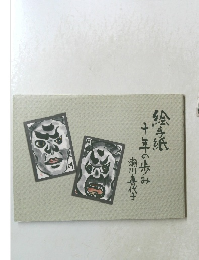 絵手紙
十年の歩み
瀬川喜代子